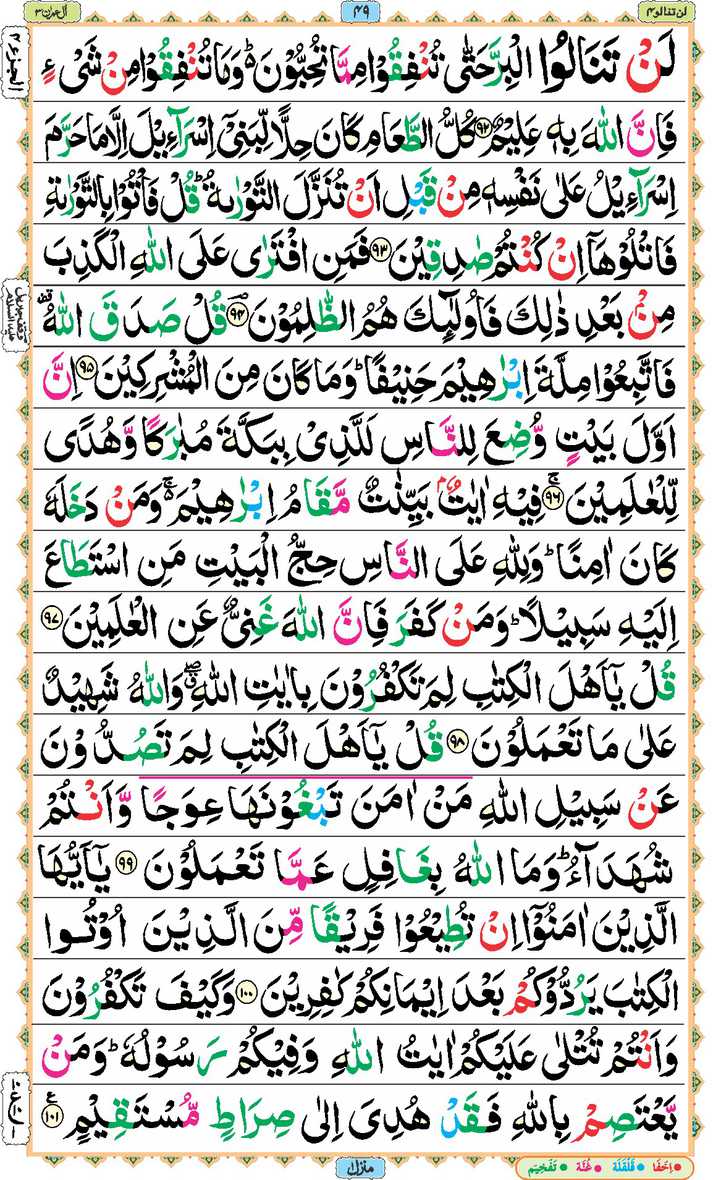 لن تنالوا ٤
٤٩
اٰل عمرٰن ٣
لَنْ تَنَالُوا الْبِرَّ حَتّٰى تُنْفِقُوْا مِمَّا تُحِبُّوْنَ ؕ۬ وَمَا تُنْفِقُوْا مِنْ شَیْءٍ
فَاِنَّ اللّٰهَ بِهٖ عَلِیْمٌ ﴿۹۲﴾ كُلُّ الطَّعَامِ كَانَ حِلًّا لِّبَنِیْۤ اِسْرَآءِیْلَ اِلَّا مَا حَرَّمَ
اِسْرَآءِیْلُ عَلٰى نَفْسِهٖ مِنْ قَبْلِ اَنْ تُنَزَّلَ التَّوْرٰىةُ ؕ قُلْ فَاْتُوْا بِالتَّوْرٰىةِ
فَاتْلُوْهَاۤ اِنْ كُنْتُمْ صٰدِقِیْنَ ﴿۹۳﴾ فَمَنِ افْتَرٰى عَلَى اللّٰهِ الْكَذِبَ
مِنْۢ بَعْدِ ذٰلِكَ فَاُولٰٓىِٕكَ هُمُ الظّٰلِمُوْنَ ﴿۹۴﴾ قُلْ صَدَقَ اللّٰهُ
فَاتَّبِعُوْا مِلَّةَ اِبْرٰهِیْمَ حَنِیْفًا ؕ وَمَا كَانَ مِنَ الْمُشْرِكِیْنَ ﴿۹۵﴾ اِنَّ
اَوَّلَ بَیْتٍ وُّضِعَ لِلنَّاسِ لَلَّذِیْ بِبَكَّةَ مُبٰرَكًا وَّهُدًى
لِّلْعٰلَمِیْنَ ﴿۹۶﴾ فِیْهِ اٰیٰتٌۢ بَیِّنٰتٌ مَّقَامُ اِبْرٰهِیْمَ ۚ۬ وَمَنْ دَخَلَهٗ
كَانَ اٰمِنًا ؕ وَلِلّٰهِ عَلَى النَّاسِ حِجُّ الْبَیْتِ مَنِ اسْتَطَاعَ
اِلَیْهِ سَبِیْلًا ؕ وَمَنْ كَفَرَ فَاِنَّ اللّٰهَ غَنِیٌّ عَنِ الْعٰلَمِیْنَ ﴿۹۷﴾
قُلْ یٰۤاَهْلَ الْكِتٰبِ لِمَ تَكْفُرُوْنَ بِاٰیٰتِ اللّٰهِ ۖۗ وَاللّٰهُ شَهِیْدٌ
عَلٰى مَا تَعْمَلُوْنَ ﴿۹۸﴾ قُلْ یٰۤاَهْلَ الْكِتٰبِ لِمَ تَصُدُّوْنَ
عَنْ سَبِیْلِ اللّٰهِ مَنْ اٰمَنَ تَبْغُوْنَهَا عِوَجًا وَّاَنْتُمْ
شُهَدَآءُ ؕ وَمَا اللّٰهُ بِغَافِلٍ عَمَّا تَعْمَلُوْنَ ﴿۹۹﴾ یٰۤاَیُّهَا
الَّذِیْنَ اٰمَنُوْۤا اِنْ تُطِیْعُوْا فَرِیْقًا مِّنَ الَّذِیْنَ اُوْتُوا
الْكِتٰبَ یَرُدُّوْكُمْ بَعْدَ اِیْمَانِكُمْ كٰفِرِیْنَ ﴿۱۰۰﴾ وَكَیْفَ تَكْفُرُوْنَ
وَاَنْتُمْ تُتْلٰى عَلَیْكُمْ اٰیٰتُ اللّٰهِ وَفِیْكُمْ رَسُوْلُهٗ ؕ وَمَنْ
یَّعْتَصِمْ بِاللّٰهِ فَقَدْ هُدِیَ اِلٰى صِرَاطٍ مُّسْتَقِیْمٍ ﴿۱۰۱﴾
منزل
اِخْفَا قَلْقَلَة غُنَّة تَفْخِیْم